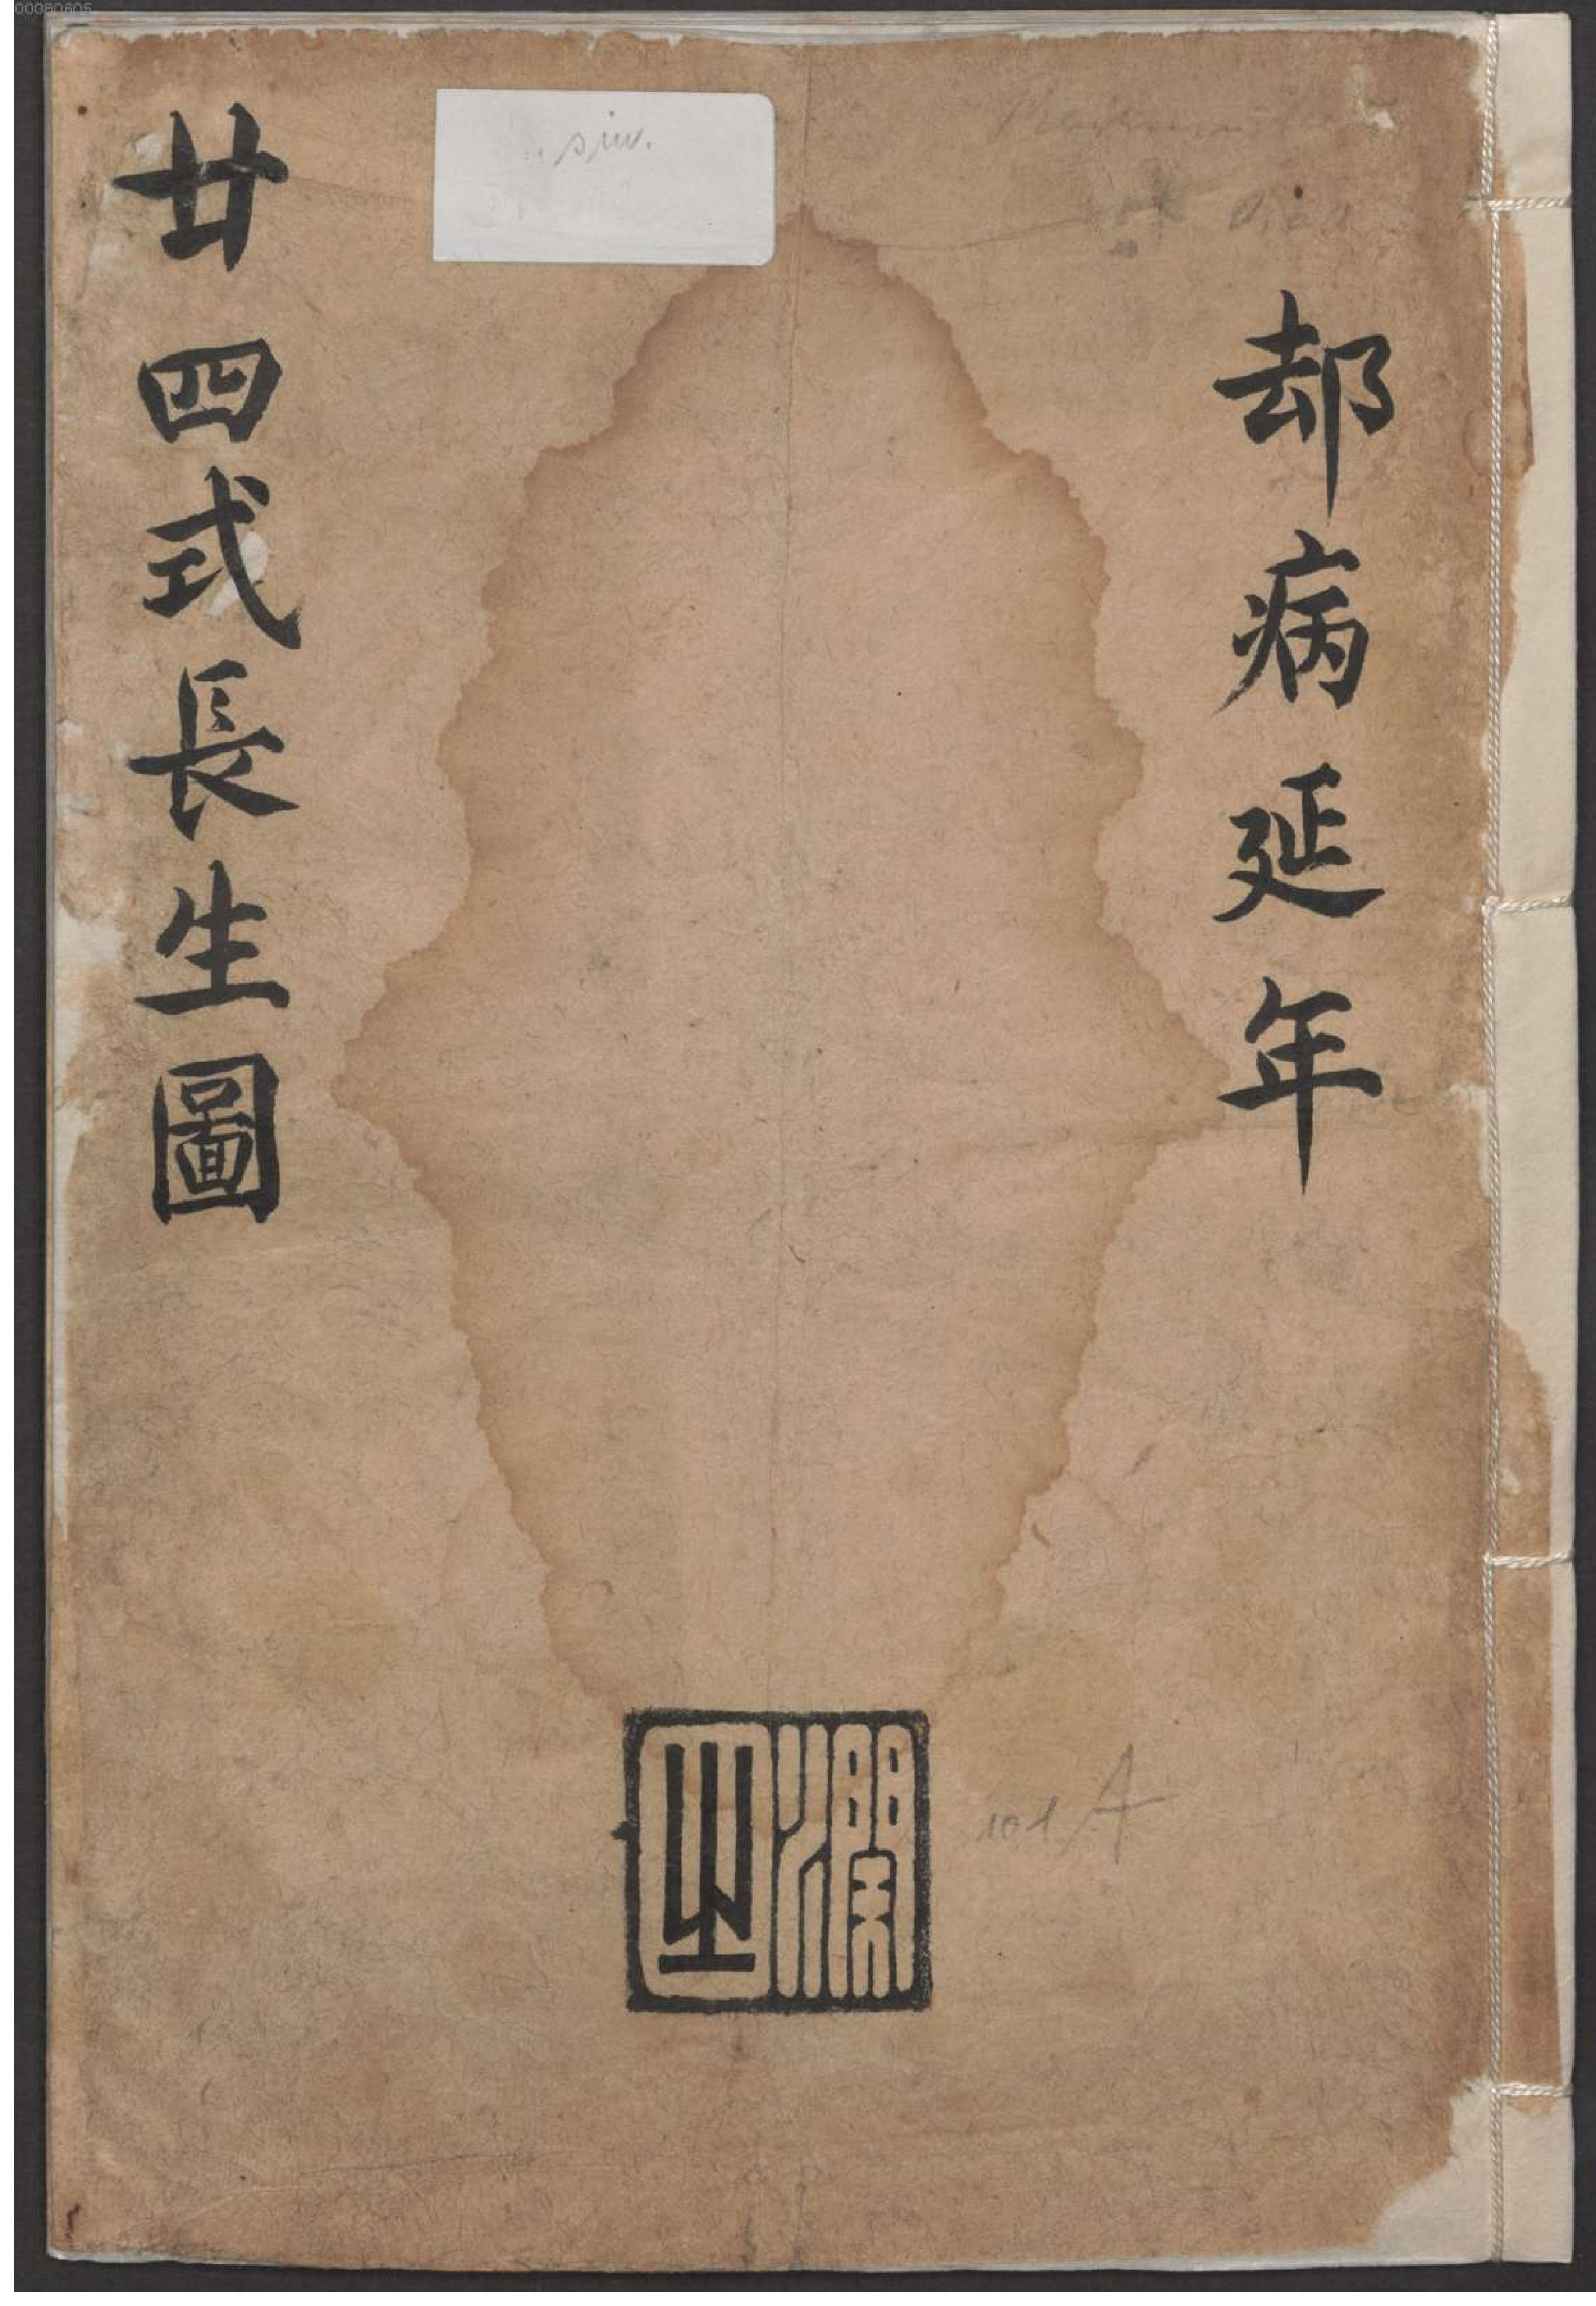 00080605
却病延年
廿四式長生圖
sin.
101 A